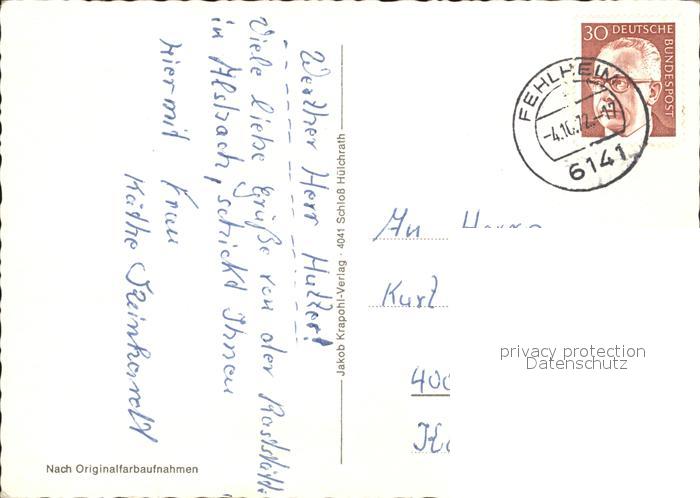 Werther Herr Hutzer!
Viele liebe Grüße von der Raststätte
in Alsbach, schickt Ihnen
hiermit Frau
Käthe Steinhardt
Jakob Krapohl-Verlag · 4041 Schloß Hülchrath
Nach Originalfarbaufnahmen
30 DEUTSCHE BUNDESPOST
FEHLHEIM
-4.10.72.-17
6141
An Herrn
Kurt
400
privacy protection
Datenschutz